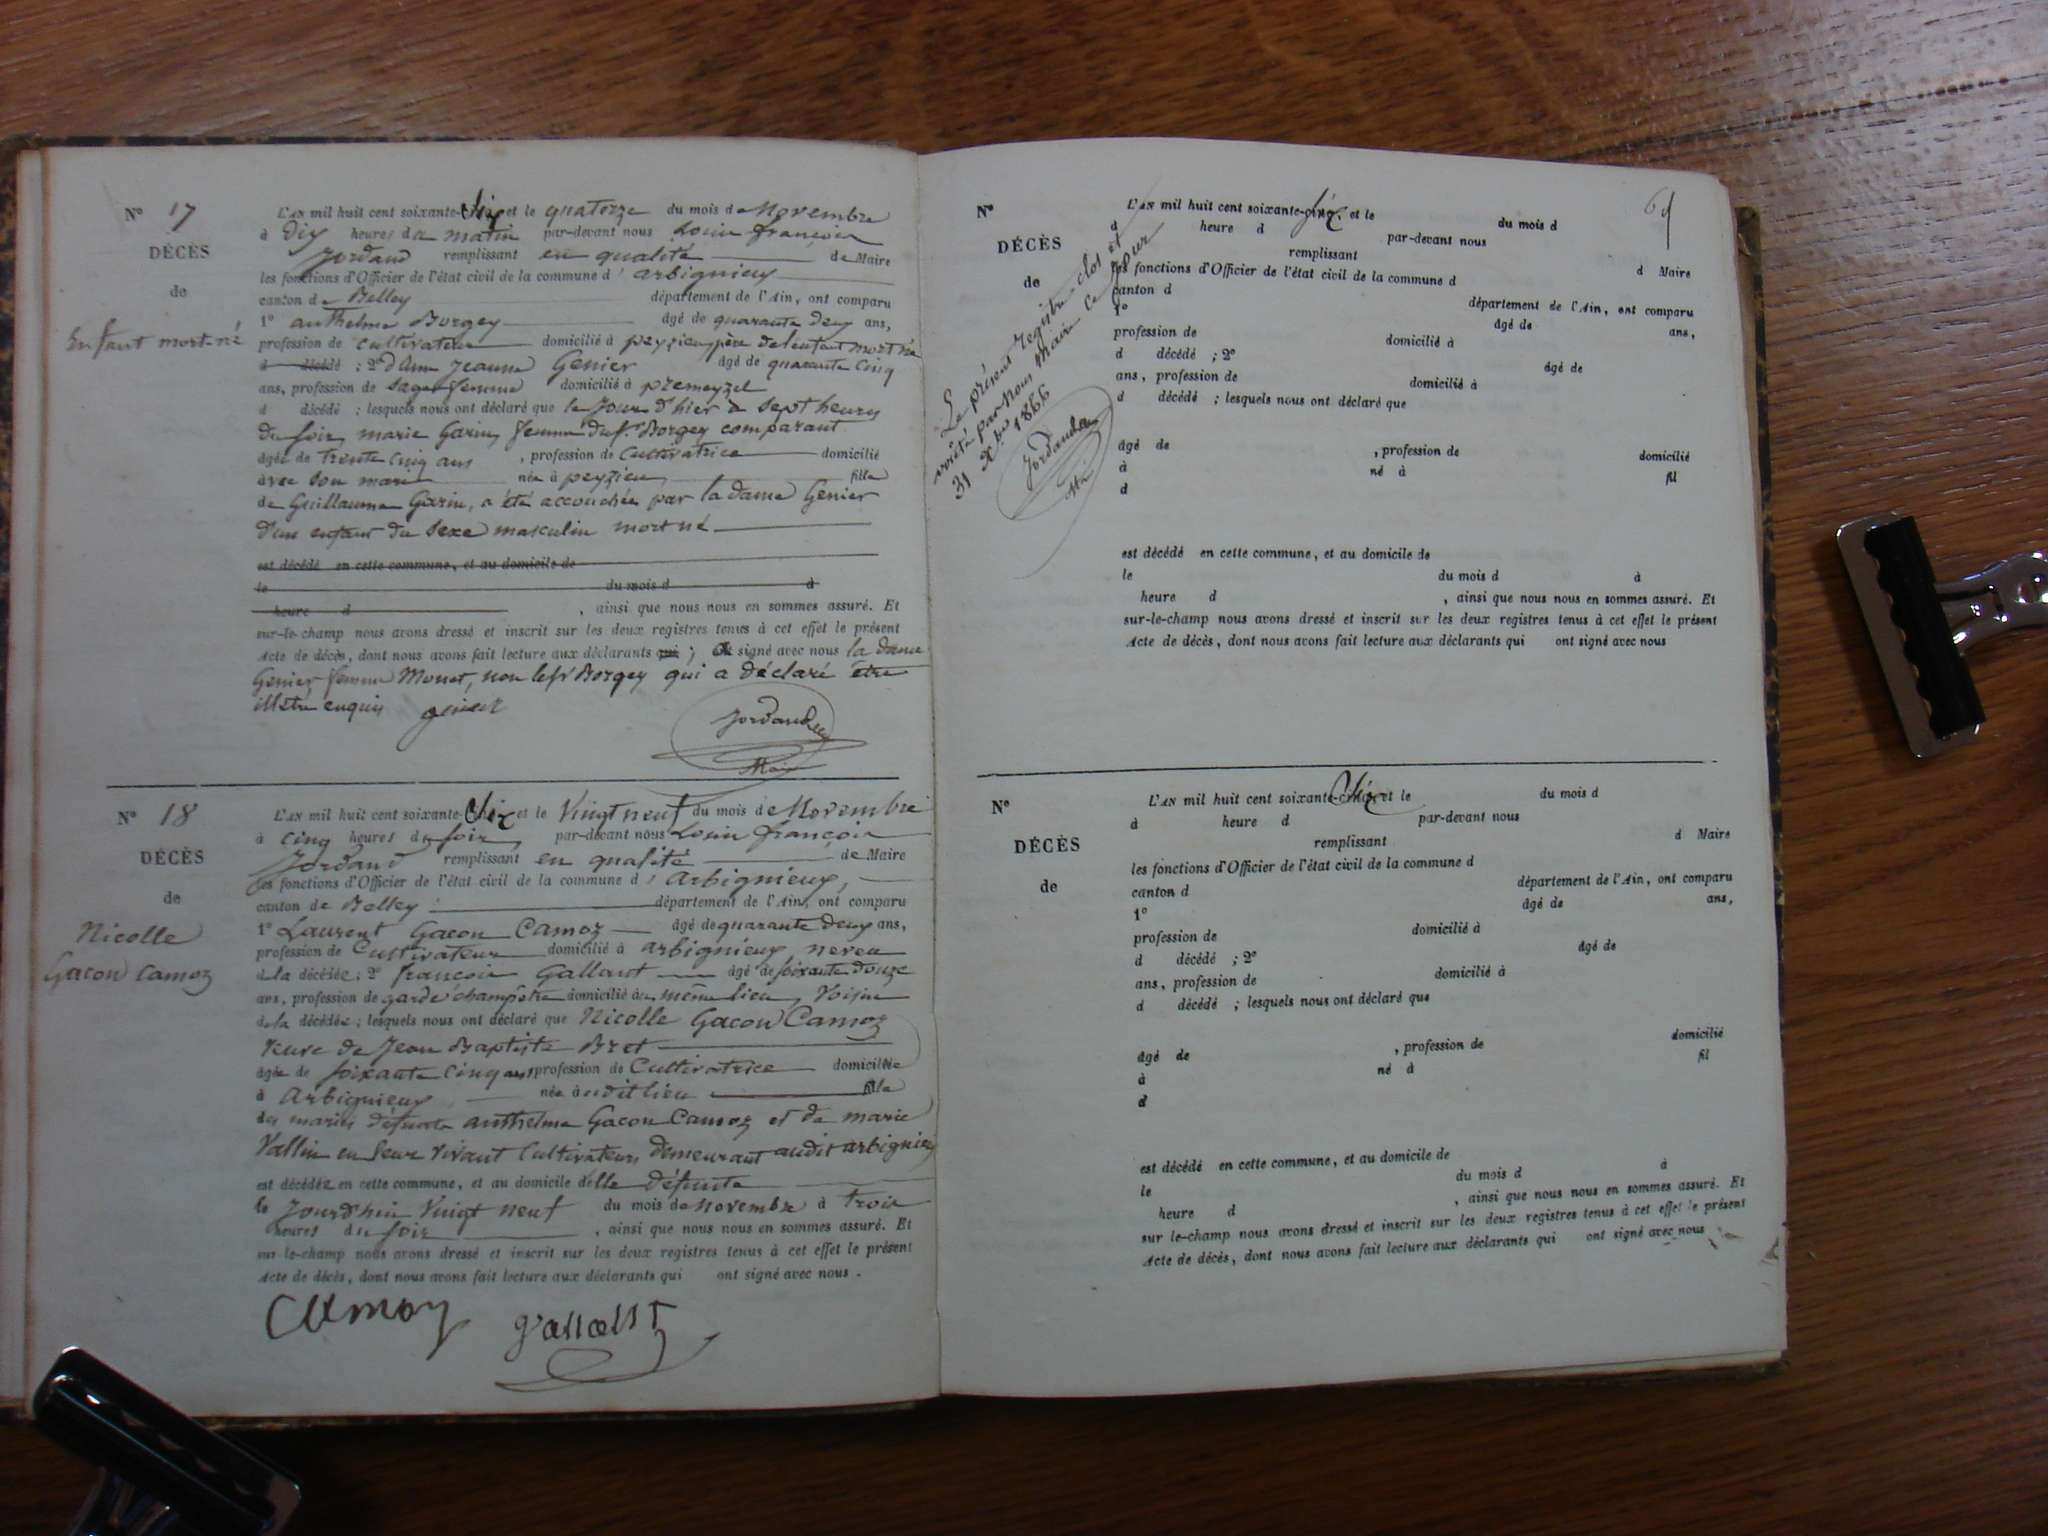 N° 17
DÉCÈS
de
Enfant mort-né
L'AN mil huit cent soixante-six et le quatorze du mois de Novembre
à dix heures du matin par-devant nous Louis françois
Jordand remplissant en qualité de Maire
les fonctions d'Officier de l'état civil de la commune d' arbignieux
canton de Belley département de l'Ain, ont comparu
1° anthelme Borgey âgé de quarante deux ans,
profession de cultivateur domicilié à peyzieu, père de l'enfant mort né
d décédé ; 2° dame Jeanne Genier âgé de quarante cinq
ans, profession de sage femme domicilié à premeyzel
d décédé ; lesquels nous ont déclaré que le jour d'hier à sept heures
du soir, marie Garin, femme du s.r Borgey comparant
âgée de trente cinq ans , profession de Cultivatrice domicilié
avec son mari née à peyzieu, fille
de Guillaume Garin, a été accouchée par la dame Genier
d'un enfant du sexe masculin mort né
est décédé en cette commune, et au domicile de
le du mois d à
heure d , ainsi que nous nous en sommes assuré. Et
sur-le-champ nous avons dressé et inscrit sur les deux registres tenus à cet effet le présent
Acte de décès, dont nous avons fait lecture aux déclarants qui ; a signé avec nous la dame
Genier femme Monet, non le sr Borgey qui a déclaré être
illétré enquis genier
Jordand
Maire
N° 18
DÉCÈS
de
Nicolle
Gacon Camoz
L'AN mil huit cent soixante-six et le Vingt neuf du mois de Novembre
à cinq heures du soir, par-devant nous Louis françois
Jordand remplissant en qualité de Maire
les fonctions d'Officier de l'état civil de la commune d' arbignieux,
canton de Belley département de l'Ain, ont comparu
1° Laurent Gacon Camoz âgé de quarante deux ans,
profession de Cultivateur domicilié à arbignieux neveu
de la décédée ; 2° francois Gallant âgé de soixante douze
ans, profession de garde champêtre domicilié au même lieu, voisin
de la décédée ; lesquels nous ont déclaré que Nicolle Gacon Camoz
veuve de Jean Baptiste Bret
âgée de soixante cinq ans profession de Cultivatrice domiciliée
à Arbignieux née audit lieu fille
des mariés défunts anthelme Gacon Camoz et de marie
Vallin en leur vivant Cultivateurs demeurant audit arbignieux
est décédée en cette commune, et au domicile de lle défunte
le Jourd'hui Vingt neuf du mois de novembre à trois
heures du soir , ainsi que nous nous en sommes assuré. Et
sur-le-champ nous avons dressé et inscrit sur les deux registres tenus à cet effet le présent
Acte de décès, dont nous avons fait lecture aux déclarants qui ont signé avec nous .
Camoz gallant
N°
DÉCÈS
de
Le présent registre clos et
arrêté par nous Maire ce jour
31 Xbre 1866
Jordand
Mai
L'AN mil huit cent soixante-six, et le du mois d
à heure d par-devant nous
remplissant d Maire
les fonctions d'Officier de l'état civil de la commune d
canton d département de l'Ain, ont comparu
1° âgé de ans,
profession de domicilié à
d décédé ; 2° âgé de
ans, profession de domicilié à
d décédé ; lesquels nous ont déclaré que
âgé de , profession de domicilié
à né à fil
d
est décédé en cette commune, et au domicile de
le du mois d à
heure d , ainsi que nous nous en sommes assuré. Et
sur-le-champ nous avons dressé et inscrit sur les deux registres tenus à cet effet le présent
Acte de décès, dont nous avons fait lecture aux déclarants qui ont signé avec nous
N°
DÉCÈS
de
L'AN mil huit cent soixante-six, et le du mois d
à heure d par-devant nous
remplissant d Maire
les fonctions d'Officier de l'état civil de la commune d
canton d département de l'Ain, ont comparu
1° âgé de ans,
profession de domicilié à
d décédé ; 2° âgé de
ans, profession de domicilié à
d décédé ; lesquels nous ont déclaré que
âgé de , profession de domicilié
à né à fil
d
est décédé en cette commune, et au domicile de
le du mois d à
heure d , ainsi que nous nous en sommes assuré. Et
sur le-champ nous avons dressé et inscrit sur les deux registres tenus à cet effet le présent
Acte de décès, dont nous avons fait lecture aux déclarants qui ont signé avec nous